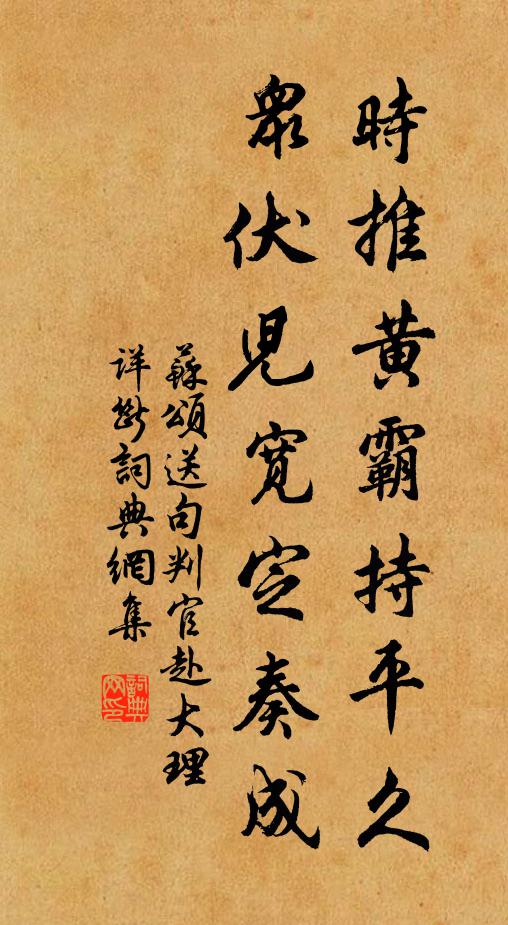 時推黃霸持平久
眾伏兒寬定奏成
蘇頌送句判官赴大理
詳斷詞典網集
詞典網印